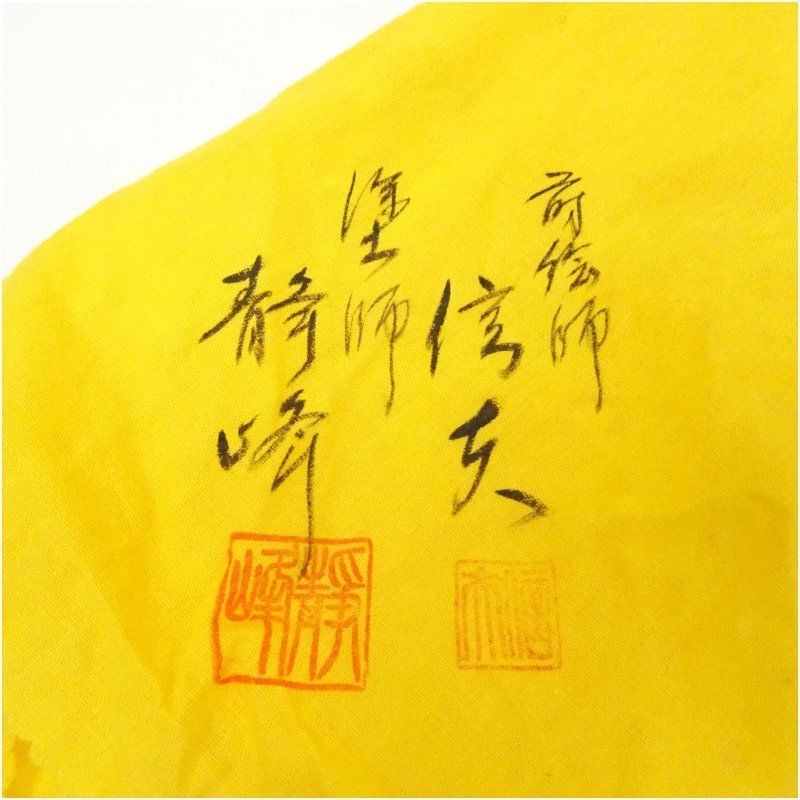 蒔絵師
信夫
塗師
静峰
静峰
信夫